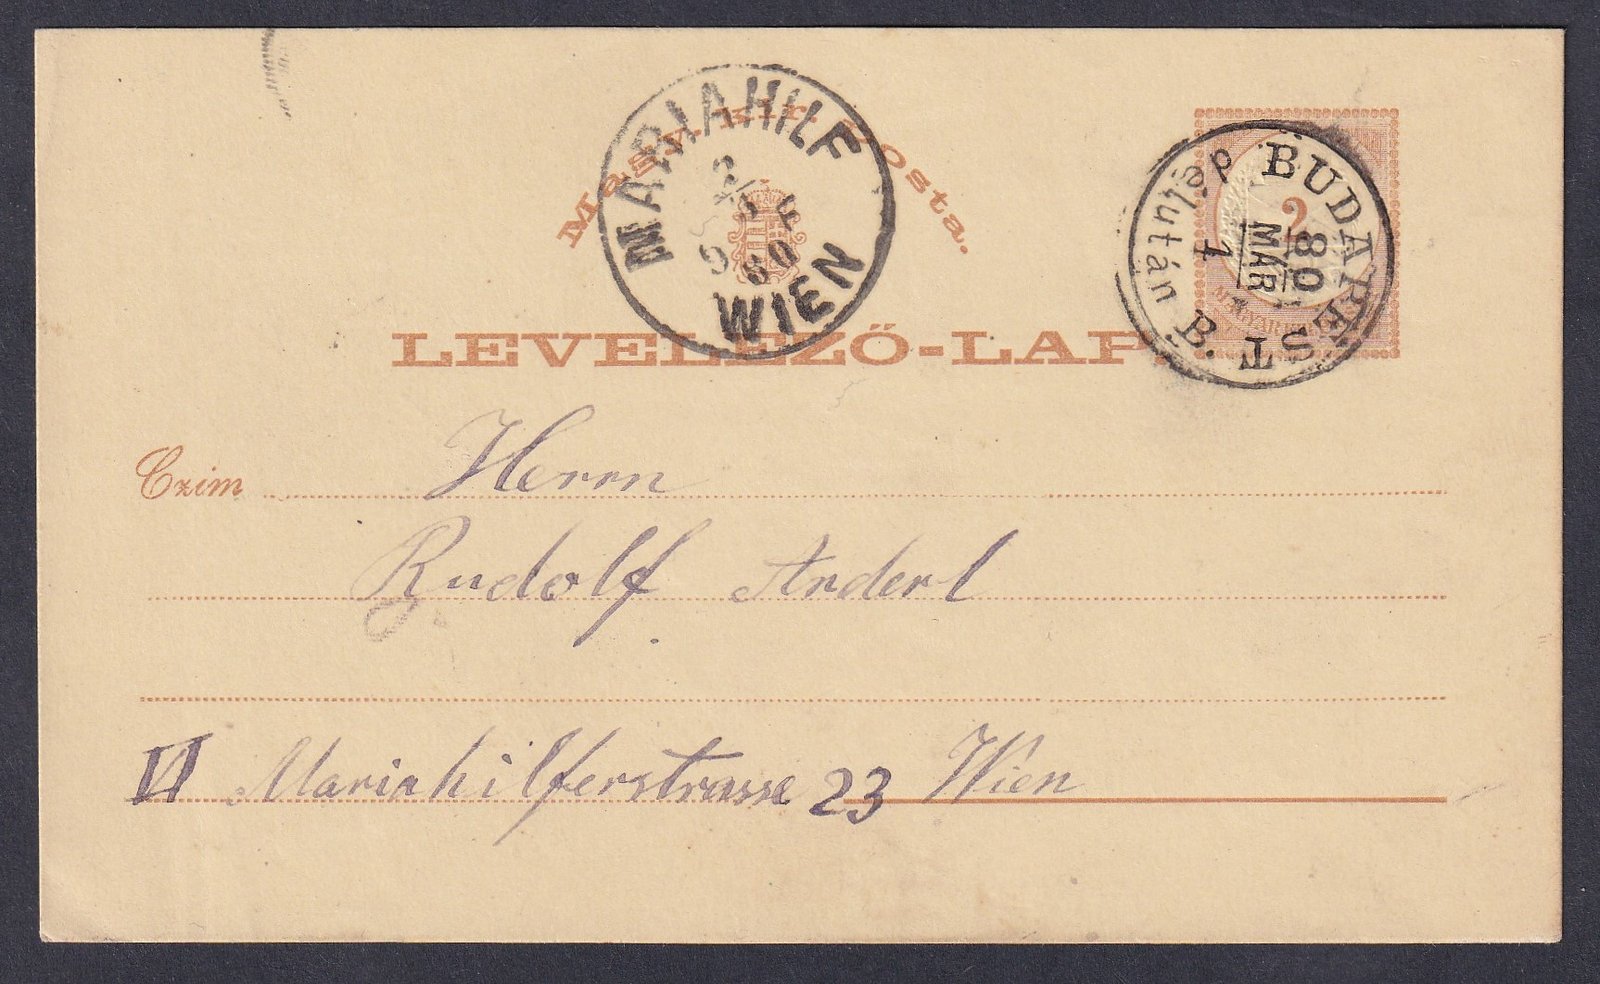 Magy. kir. posta.
MARIAHILF
2/3
80
WIEN
BUDAPEST
délután B.
80
MÁR
1
2
LEVELEZŐ-LAP
Czim Herrn
Rudolf Anderl
VI Mariahilferstrasse 23 Wien